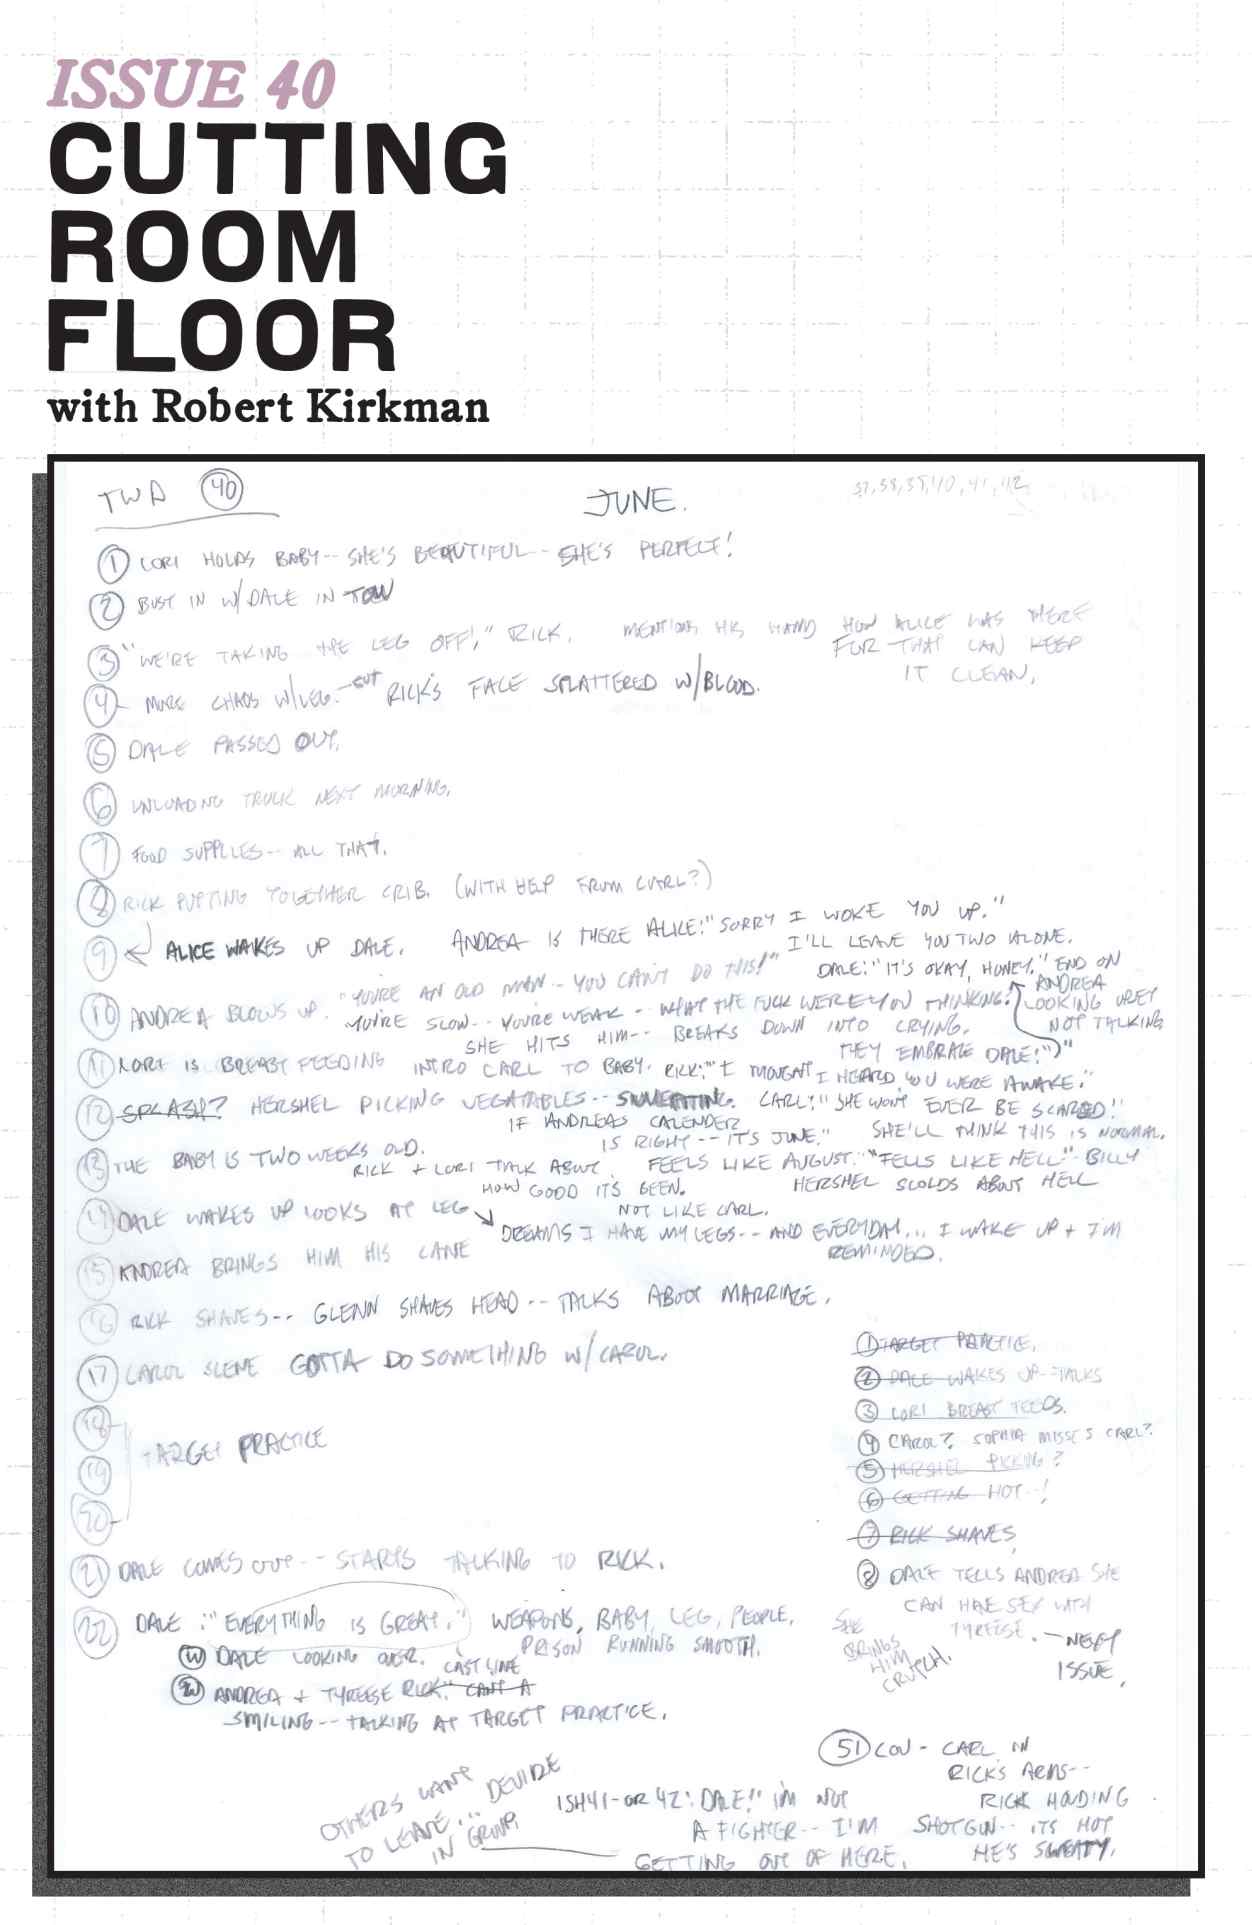 ISSUE 40
CUTTING
ROOM
FLOOR
with Robert Kirkman
TWD 40
JUNE.
37, 38, 39, 40, 41, 42
1 LORI HOLDS BABY-- SHE'S BEAUTIFUL-- SHE'S PERFECT!
2 BUST IN W/DALE IN TOW
3 "WE'RE TAKING THE LEG OFF!" RICK. MENTIONS HIS HAND HOW ALICE WAS THERE
FOR THAT CAN KEEP
IT CLEAN.
4 MORE CHAOS W/LEG.-- CUT RICK'S FACE SPLATTERED W/BLOOD.
5 DALE PASSED OUT.
6 UNLOADING TRUCK NEXT MORNING.
7 FOOD SUPPLIES-- ALL THAT.
8 RICK PUTTING TOGETHER CRIB. (WITH HELP FROM CARL?)
9 ALICE WAKES UP DALE. ANDREA IS THERE ALICE: "SORRY I WOKE YOU UP."
I'LL LEAVE YOU TWO ALONE.
DALE: "IT'S OKAY, HONEY." END ON
ANDREA
LOOKING UPSET
NOT TALKING
10 ANDREA BLOWS UP. "YOU'RE AN OLD MAN-- YOU CAN'T DO THIS!"
YOU'RE SLOW-- YOU'RE WEAK-- WHAT THE FUCK WERE YOU THINKING.
SHE HITS HIM-- BREAKS DOWN INTO CRYING.
THEY EMBRACE DALE: " "
11 LORI IS BREAST FEEDING INTRO CARL TO BABY. RICK: "I THOUGHT I HEARD YOU WERE AWAKE."
12 SPLASH? HERSHEL PICKING VEGATABLES-- SWEATING. CARL: "SHE WON'T EVER BE SCARED!"
IF ANDREAS CALENDER
IS RIGHT-- IT'S JUNE." SHE'LL THINK THIS IS NORMAL.
13 THE BABY IS TWO WEEKS OLD.
RICK + LORI TALK ABOUT
HOW GOOD IT'S BEEN.
NOT LIKE CARL.
FEELS LIKE AUGUST. "FELLS LIKE HELL"- BILLY
HERSHEL SCOLDS ABOUT HELL
14 DALE WAKES UP LOOKS AT LEG
DREAMS I HAVE MY LEGS-- AND EVERYDAY... I WAKE UP + I'M
REMINDED.
15 ANDREA BRINGS HIM HIS CANE
16 RICK SHAVES-- GLENN SHAVES HEAD-- TALKS ABOUT MARRIAGE.
17 CAROL SCENE GOTTA DO SOMETHING W/CAROL.
18
19 TARGET PRACTICE
20
21 DALE COMES OUT-- STARTS TALKING TO RICK.
22 DALE: "EVERYTHING IS GREAT." WEAPONS, BABY, LEG, PEOPLE,
PRISON RUNNING SMOOTH.
DALE LOOKING OVER. LAST LINE
ANDREA + TYREESE RICK: " CAN'T A
SMILING-- TALKING AT TARGET PRACTICE.
1 TARGET PRACTICE.
2 DALE WAKES UP--TALKS
3 LORI BREAST FEEDS.
4 CAROL? SOPHIA MISSES CARL?
5 HERSHEL PICKING?
6 GETTING HOT--!
7 RICK SHAVES
8 DALE TELLS ANDREA SHE
CAN HAVE SEX WITH
TYREESE. -- NEXT
ISSUE.
SHE
BRINGS
HIM
CRUTCH.
OTHERS WANT
TO LEAVE." DEVIDE
IN GROUP.
ISH 41-OR 42: DALE!" I'M NOT
A FIGHTER-- I'M
GETTING OUT OF HERE.
51 COV - CARL IN
RICK'S ARMS--
RICK HOLDING
SHOTGUN-- ITS HOT
HE'S SWEATY.